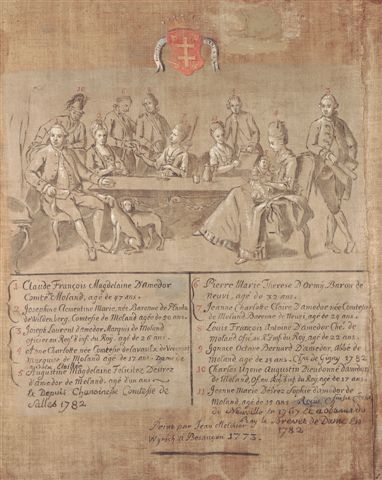 1 Claude François Magdelaine Damedor
Comte Moland, agé de 47 ans.
2 Josephine Clementine Marie, née Baronne de
Comtesse de Moland agée de 50 ans.
3 Joseph Laurent damedor Marquis de Moland
officier au Regt. d'inf. du Roy, agé de 26 ans.
4 Anne Charlotte née Comtesse de
Marquise de Moland agée de 21 ans. Dame de
5 Augustine Magdelaine Felicitez Desirez
damedor de Moland. agée d'un ans
et Depuis Chanoinesse Comtesse de
Salles 1782
6 Pierre Marie Therese D'Ormy Baron de
Neuri, agé de 32 ans.
7 Jeanne Charlotte Claire Damedor née Comtesse
de Moland, Baronne de Neuri, agée de 24 ans.
8 Louis François Antoine Damedor Che. de
Moland offic. au R. d'inf. du Roy, agé de 22 ans.
9 Ignace Octave Bernard Damedor Abbé de
Moland, agé de 21 ans. 1782
10 Charles Ugene Augustin Dieudonné damedor
de Moland, Of. au R. d'inf. du Roy, agé de 17 ans
11 Jeanne Marie Desirez Sophie damedor de
Moland, agée de 12 ans. Reçue
de Neuville en 1767 Et a obtenu du
Roy le Brevet de Dame En
1782
Peint par Jean Melchior
Wyrsch a Besançon 1773.